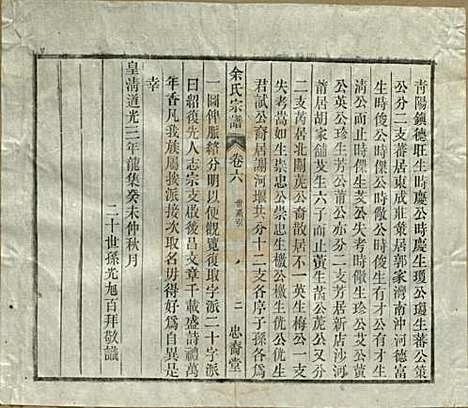 青陽鎮德旺生時慶公時慶生瓊公瓊生蕃公策
公分二支蕃居東咸莊葵居郭家灣南沖河德富
生時俊公時俊生時儆公時儆生時傑公時傑生
清公而止時傑生時俶公時俶生珍公艾公黃
公英公珍生芳公莆公亦分二支芳居新店沙河
莆居胡家舖艾生六子而止黃生萵公蔗公又分
二支芮居北閘蔗公裔散居不一英生梅公一支
失考萵如生崇忠公崇生檄公檄生侊公侊生
君試公裔居謝河堰共分十二支各房子孫各為
余氏宗譜 卷六 世系引 二 忠裔堂
一圖俾脈絡分明以便觀覽復取字派二十字派
曰紹復先人志宗支啟吕文章千載盛壽禮萬
年香凡我族屬挨派接次取名毋得好為自異是
幸
皇清道光三年龍集癸未仲秋月
二十世孫光旭百拜敬識